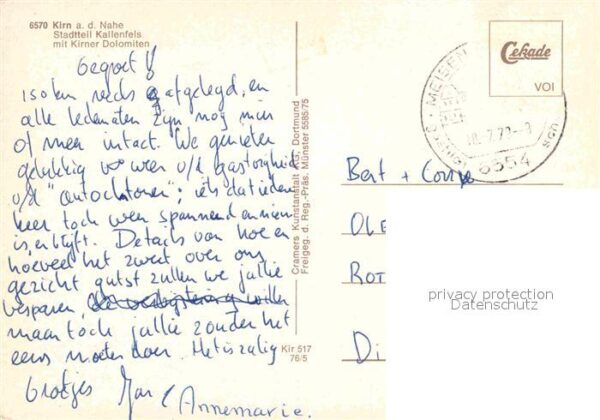 6570 Kirn a. d. Nahe
Stadtteil Kallenfels
mit Kirner Dolomiten
Gegroet!
150 km reeds afgelegd, en
alle ledematen zijn nog min
of meer intact. We genieten
gelukkig weer v/d gastvrijheid
v/d "autochtonen"; iets dat iedere
keer toch weer spannend en nieuw
is, en blijft. Details van hoe en
hoeveel het zweet over ons
gezicht gutst zullen we jullie
besparen,
maar toch jullie zonder het
eens moeten doen. Het is zalig
Grotjes Mar
(Annemarie.
Cramers Kunstanstalt KG, Dortmund
Freigeg. d. Reg.-Präs. Münster 5585/75
Kir 517
76/5
Cekade
VOI
MEISEN
6554
Bert + Corrie
OLE
ROT
Di
privacy protection
Datenschutz